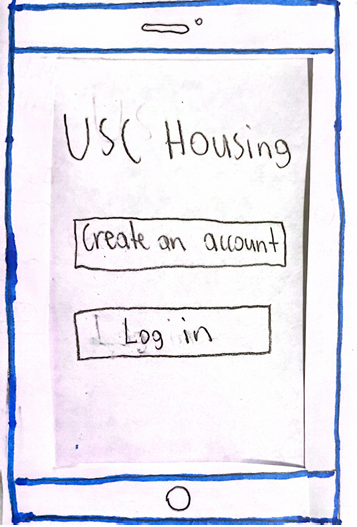 USC Housing
Create an account
Log in